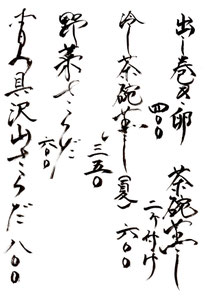 出し巻き卵
四〇〇
茶碗蒸し
二ヶ付け
六〇〇
冷し茶碗蒸し(夏)
三五〇
野菜さらだ
六〇〇
具沢山さらだ 八〇〇